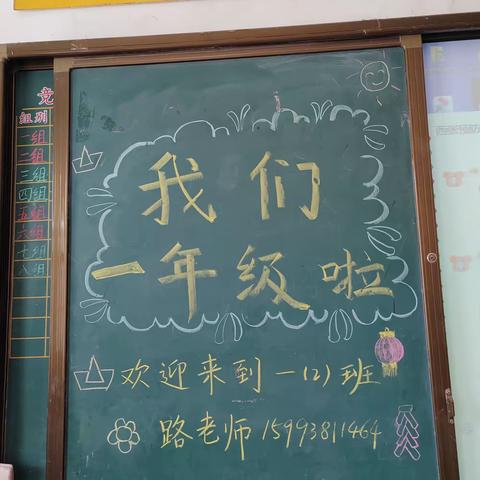 我们
一年级啦
欢迎来到一(2)班
路老师 15993811464
竞
组别
一组
二组
三组
四组
五组
六组
七组
八组